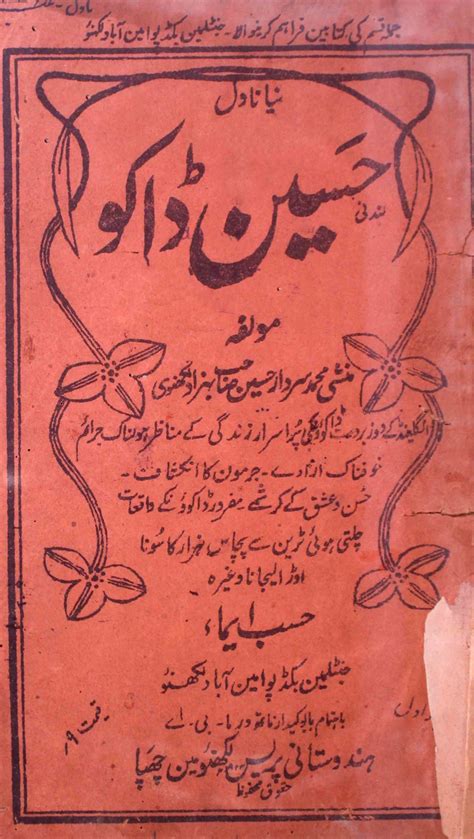 ناول
جملہ قسم کی کتابین فراہم کرنیوالا۔ جنٹلمین بکڈپو امین آباد لکھنؤ
نیا ناول
حسین ڈاکو
لندنی
مولفہ
منشی محمد سردار حسین صاحب بہزاد لکھنوی
انگلینڈ کے دو زبردست ڈاکوؤنکی پُراسرار زندگی کے مناظر ہولناک جرائم
خوفناک ارادے۔ جرمون کا انکشاف۔
حُسن و عشق کے کرشمے۔ مفرور ڈاکوؤنکے واقعات
چلتی ہوئی ٹرین سے پچاس ہزار کا سونا
اوڑا لیجانا وغیرہ
حسب ایماء
جنٹلمین بکڈپو امین آباد لکھنؤ
قیمت ۹
باہتمام بابو کیدار ناتھ ورما۔ بی۔ اے
ہندوستانی پریس لکھنؤ مین چھپا
حقوق محفوظ